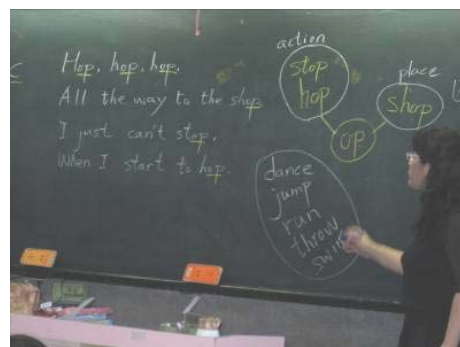 Hop, hop, hop,
All the way to the shop
I just can't stop,
When I start to hop.
action
stop
hop
place
shop
op
dance
jump
run
throw
swim